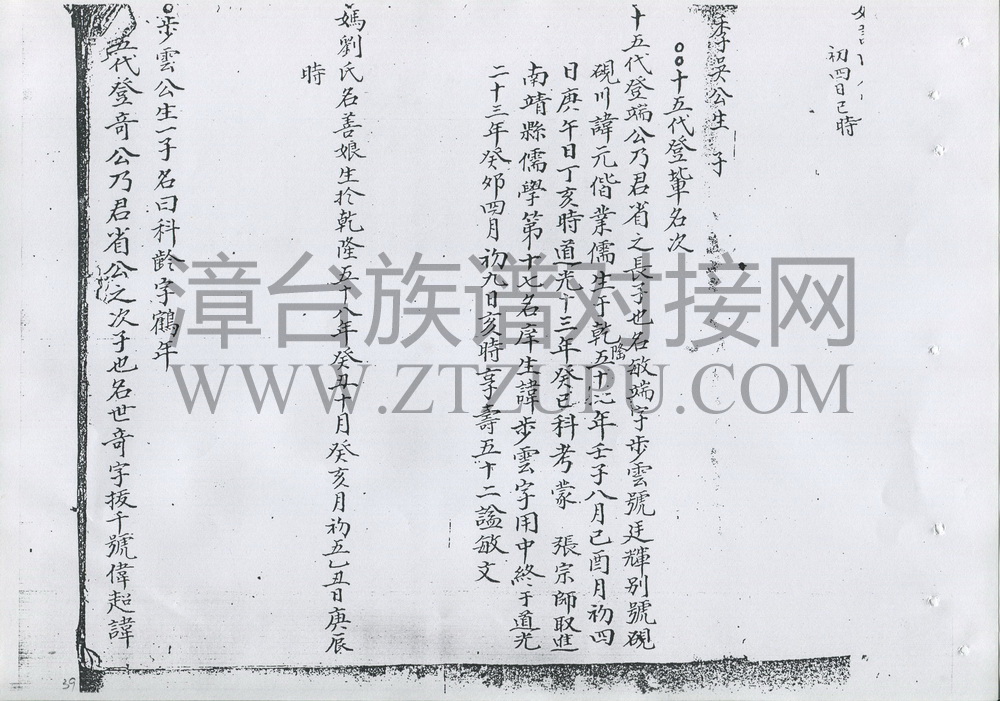 初四日巳時
李吳公生 子
十五代登輩名次
十五代登端公乃君省之長子也名敏端字步雲號廷輝別號硯
硯川諱元偕業儒生于乾隆五十七年壬子八月己酉月初四
日庚午日丁亥時道光十三年癸巳科考蒙 張宗師取進
南靖縣儒學第十七名庠生諱步雲字用中終于道光
二十三年癸卯四月初九日亥時享壽五十二謚敏文
媽劉氏名善娘生於乾隆五十八年癸丑十月癸亥月初五乙丑日庚辰
時
步雲公生一子名曰科齡字鶴年
五代登奇公乃君省公之次子也名世奇字拔千號偉超諱
漳台族谱对接网
WWW.ZTZUPU.COM
39